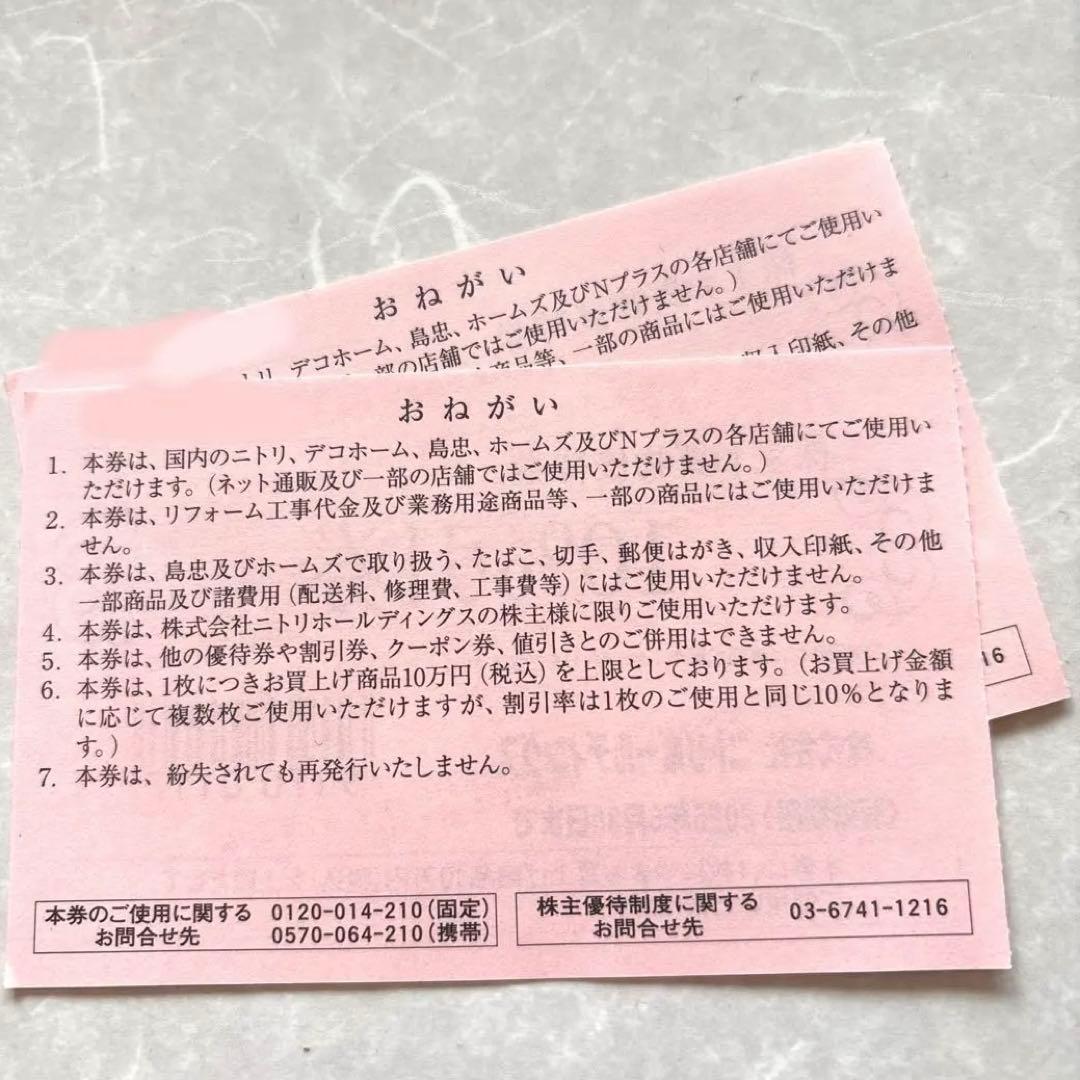 おねがい
トリ、デコホーム、島忠、ホームズ及びNプラスの各店舗にてご使用い
部の店舗ではご使用いただけません。)
商品等、一部の商品にはご使用いただけま
収入印紙、その他
16
おねがい
1. 本券は、国内のニトリ、デコホーム、島忠、ホームズ及びNプラスの各店舗にてご使用い
ただけます。(ネット通販及び一部の店舗ではご使用いただけません。)
2. 本券は、リフォーム工事代金及び業務用途商品等、一部の商品にはご使用いただけま
せん。
3. 本券は、島忠及びホームズで取り扱う、たばこ、切手、郵便はがき、収入印紙、その他
一部商品及び諸費用(配送料、修理費、工事費等)にはご使用いただけません。
4. 本券は、株式会社ニトリホールディングスの株主様に限りご使用いただけます。
5. 本券は、他の優待券や割引券、クーポン券、値引きとのご併用はできません。
6. 本券は、1枚につきお買上げ商品10万円(税込)を上限としております。(お買上げ金額
に応じて複数枚ご使用いただけますが、割引率は1枚のご使用と同じ10%となりま
す。)
7. 本券は、紛失されても再発行いたしません。
本券のご使用に関する 0120-014-210(固定)
お問合せ先 0570-064-210(携帯)
株主優待制度に関する
お問合せ先
03-6741-1216